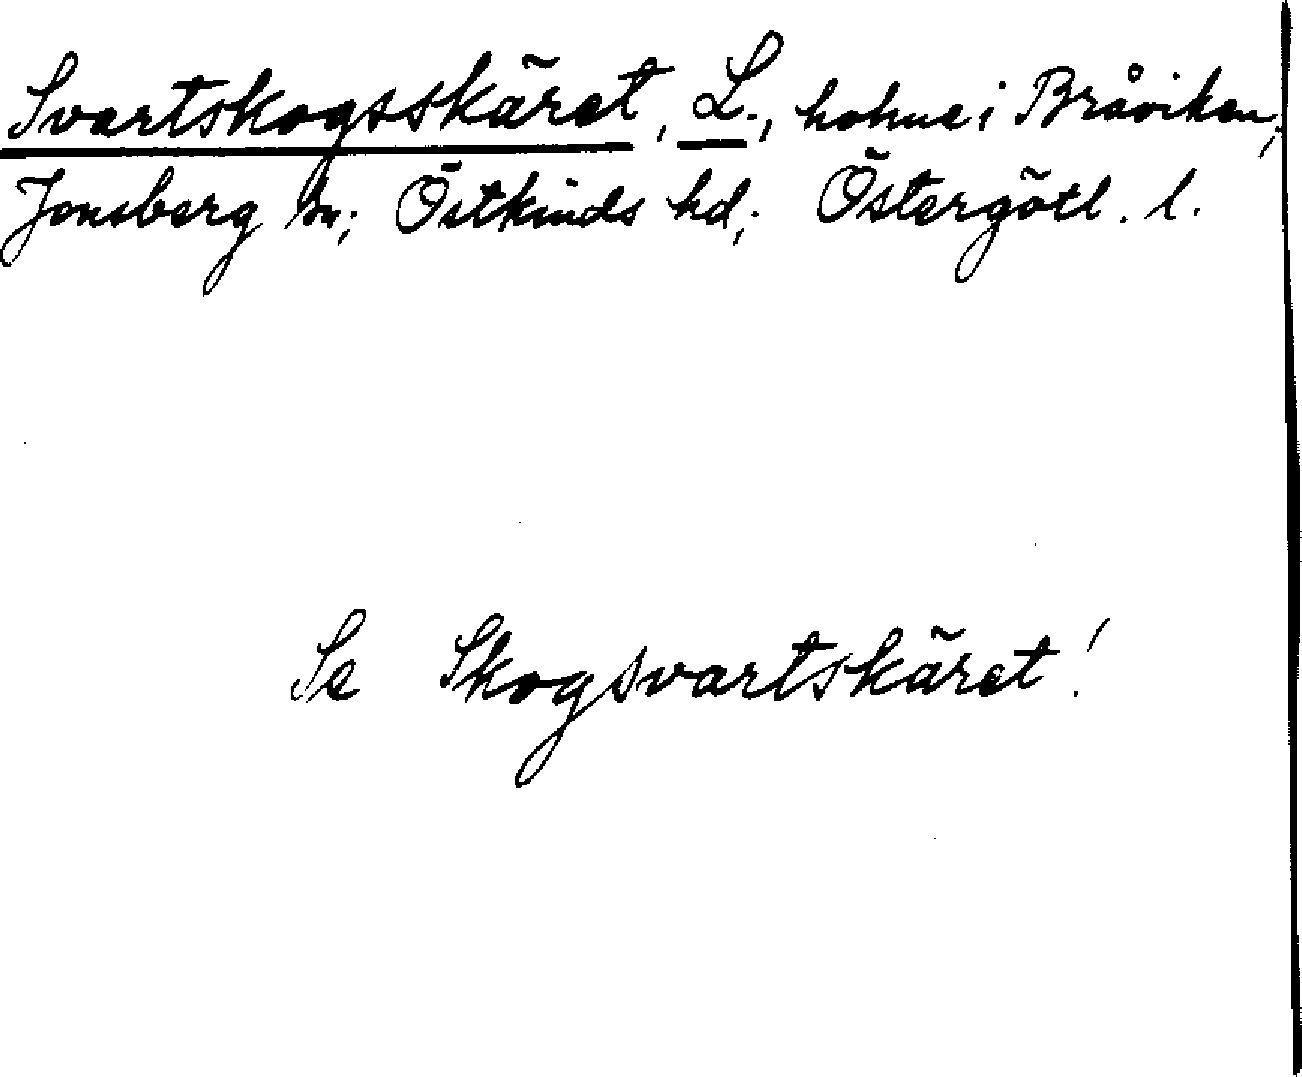 Svartskogsskäret, L., holme i Bråviken;
Jonsberg sn; Östkinds hd; Östergötl. l.
Se Skogsvartskäret!